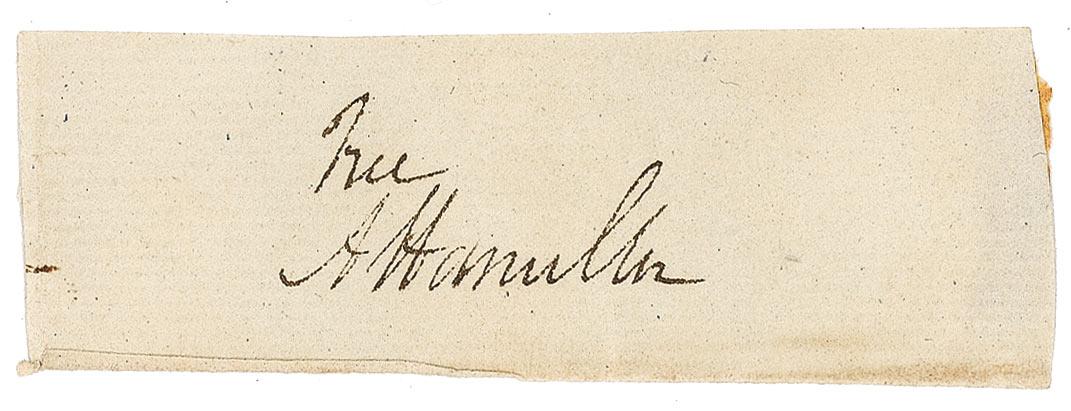 Free
A Hamilton